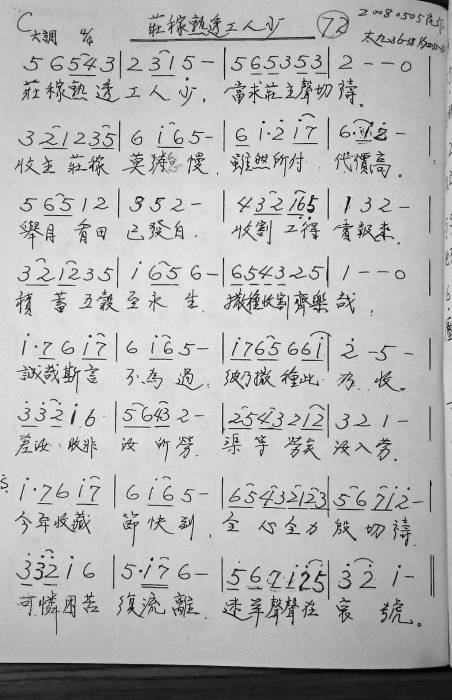 C大調 4/4 莊稼熟透工人少 72 20080505
5 6 5 4 3 | 2 3 1 5 - | 5 6 5 3 5 3 | 2 - - 0
莊稼熟透工人少, 當求莊主聲切禱。
3 2 1 2 3 5 | 6 i 6 5 - | 6 i·2 i 7 |
收主莊稼 莫 慢, 雖然所付 代價高。
5 6 5 1 2 | 3 5 2 - | 4 3 2 1 6 5 | 1 3 2 -
舉目看田 已發白, 收割工得 賞報來,
3 2 1 2 3 5 | i 6 5 6 - | 6 5 4 3 2 5 | 1 - - 0
積蓄五穀至永生, 撒種收割齊樂哉,
i·7 6 i 7 | 6 i 6 5 - | i 7 6 5 6 6 i | 2 - 5 -
誠哉斯言 不為過, 彼乃撒種此為收。
3 3 2 i 6 | 5 6 4 3 2 - | 2 5 4 3 2 1 2 | 3 2 1 -
差汝收非 汝所勞, 渠等勞矣汝入勞。
i·7 6 i 7 | 6 i 6 5 - | 6 5 4 3 2 1 2 3 | 5 6 7 i 2 -
今年收藏 節快到, 全心全力 殷切禱
3 3 2 i 6 | 5·i 7 6 - | 5 6 7·i 2 5 | 3 2 i -
可憐困苦 復流離, 迷羊聲聲在哀號。